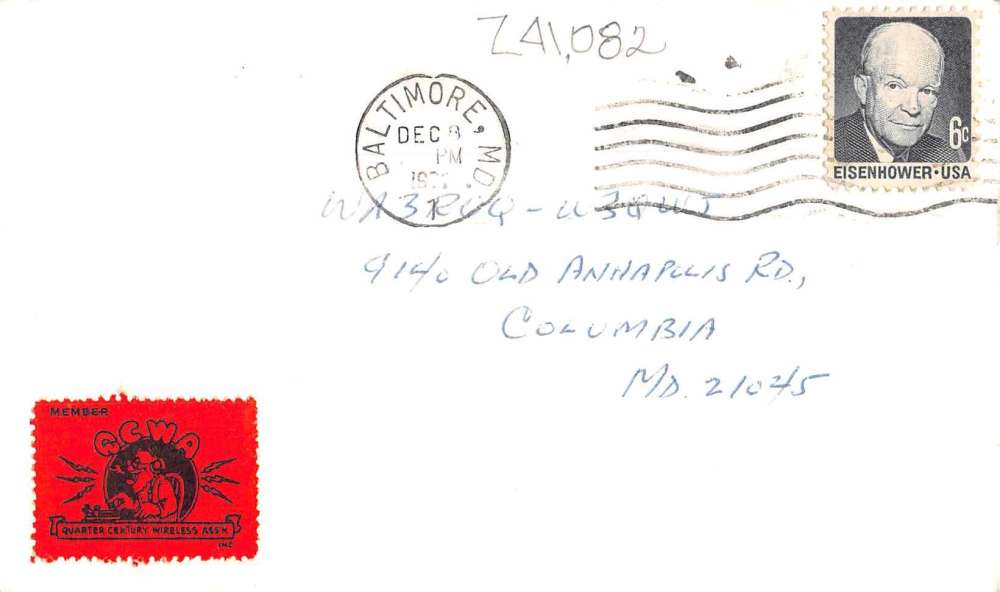 Z41,082
BALTIMORE, MD
DEC 8
PM
6c
EISENHOWER·USA
9140 OLD ANNAPOLIS RD.,
COLUMBIA
MD. 21045
MEMBER
QCWA
QUARTER CENTURY WIRELESS ASS'N
INC